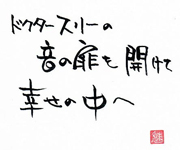 ドクタースリーの
音の扉を開けて
幸せの中へ